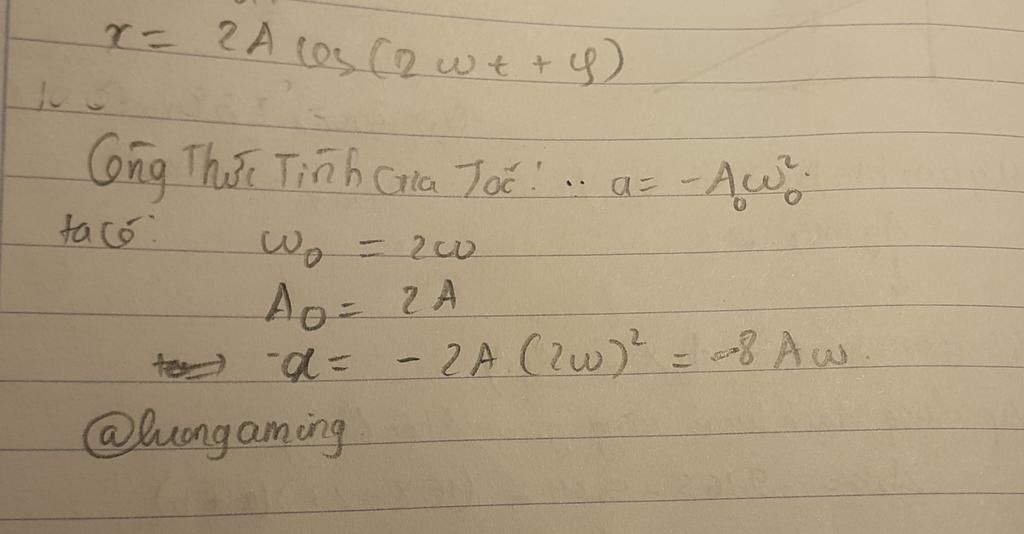 x = 2A cos(2ωt + φ)
Công Thức Tính Gia Tốc: .. a = -A₀ω₀².
ta có:
ω₀ = 2ω
A₀ = 2A
-a = - 2A (2ω)² = -8 Aω.
@luongaming